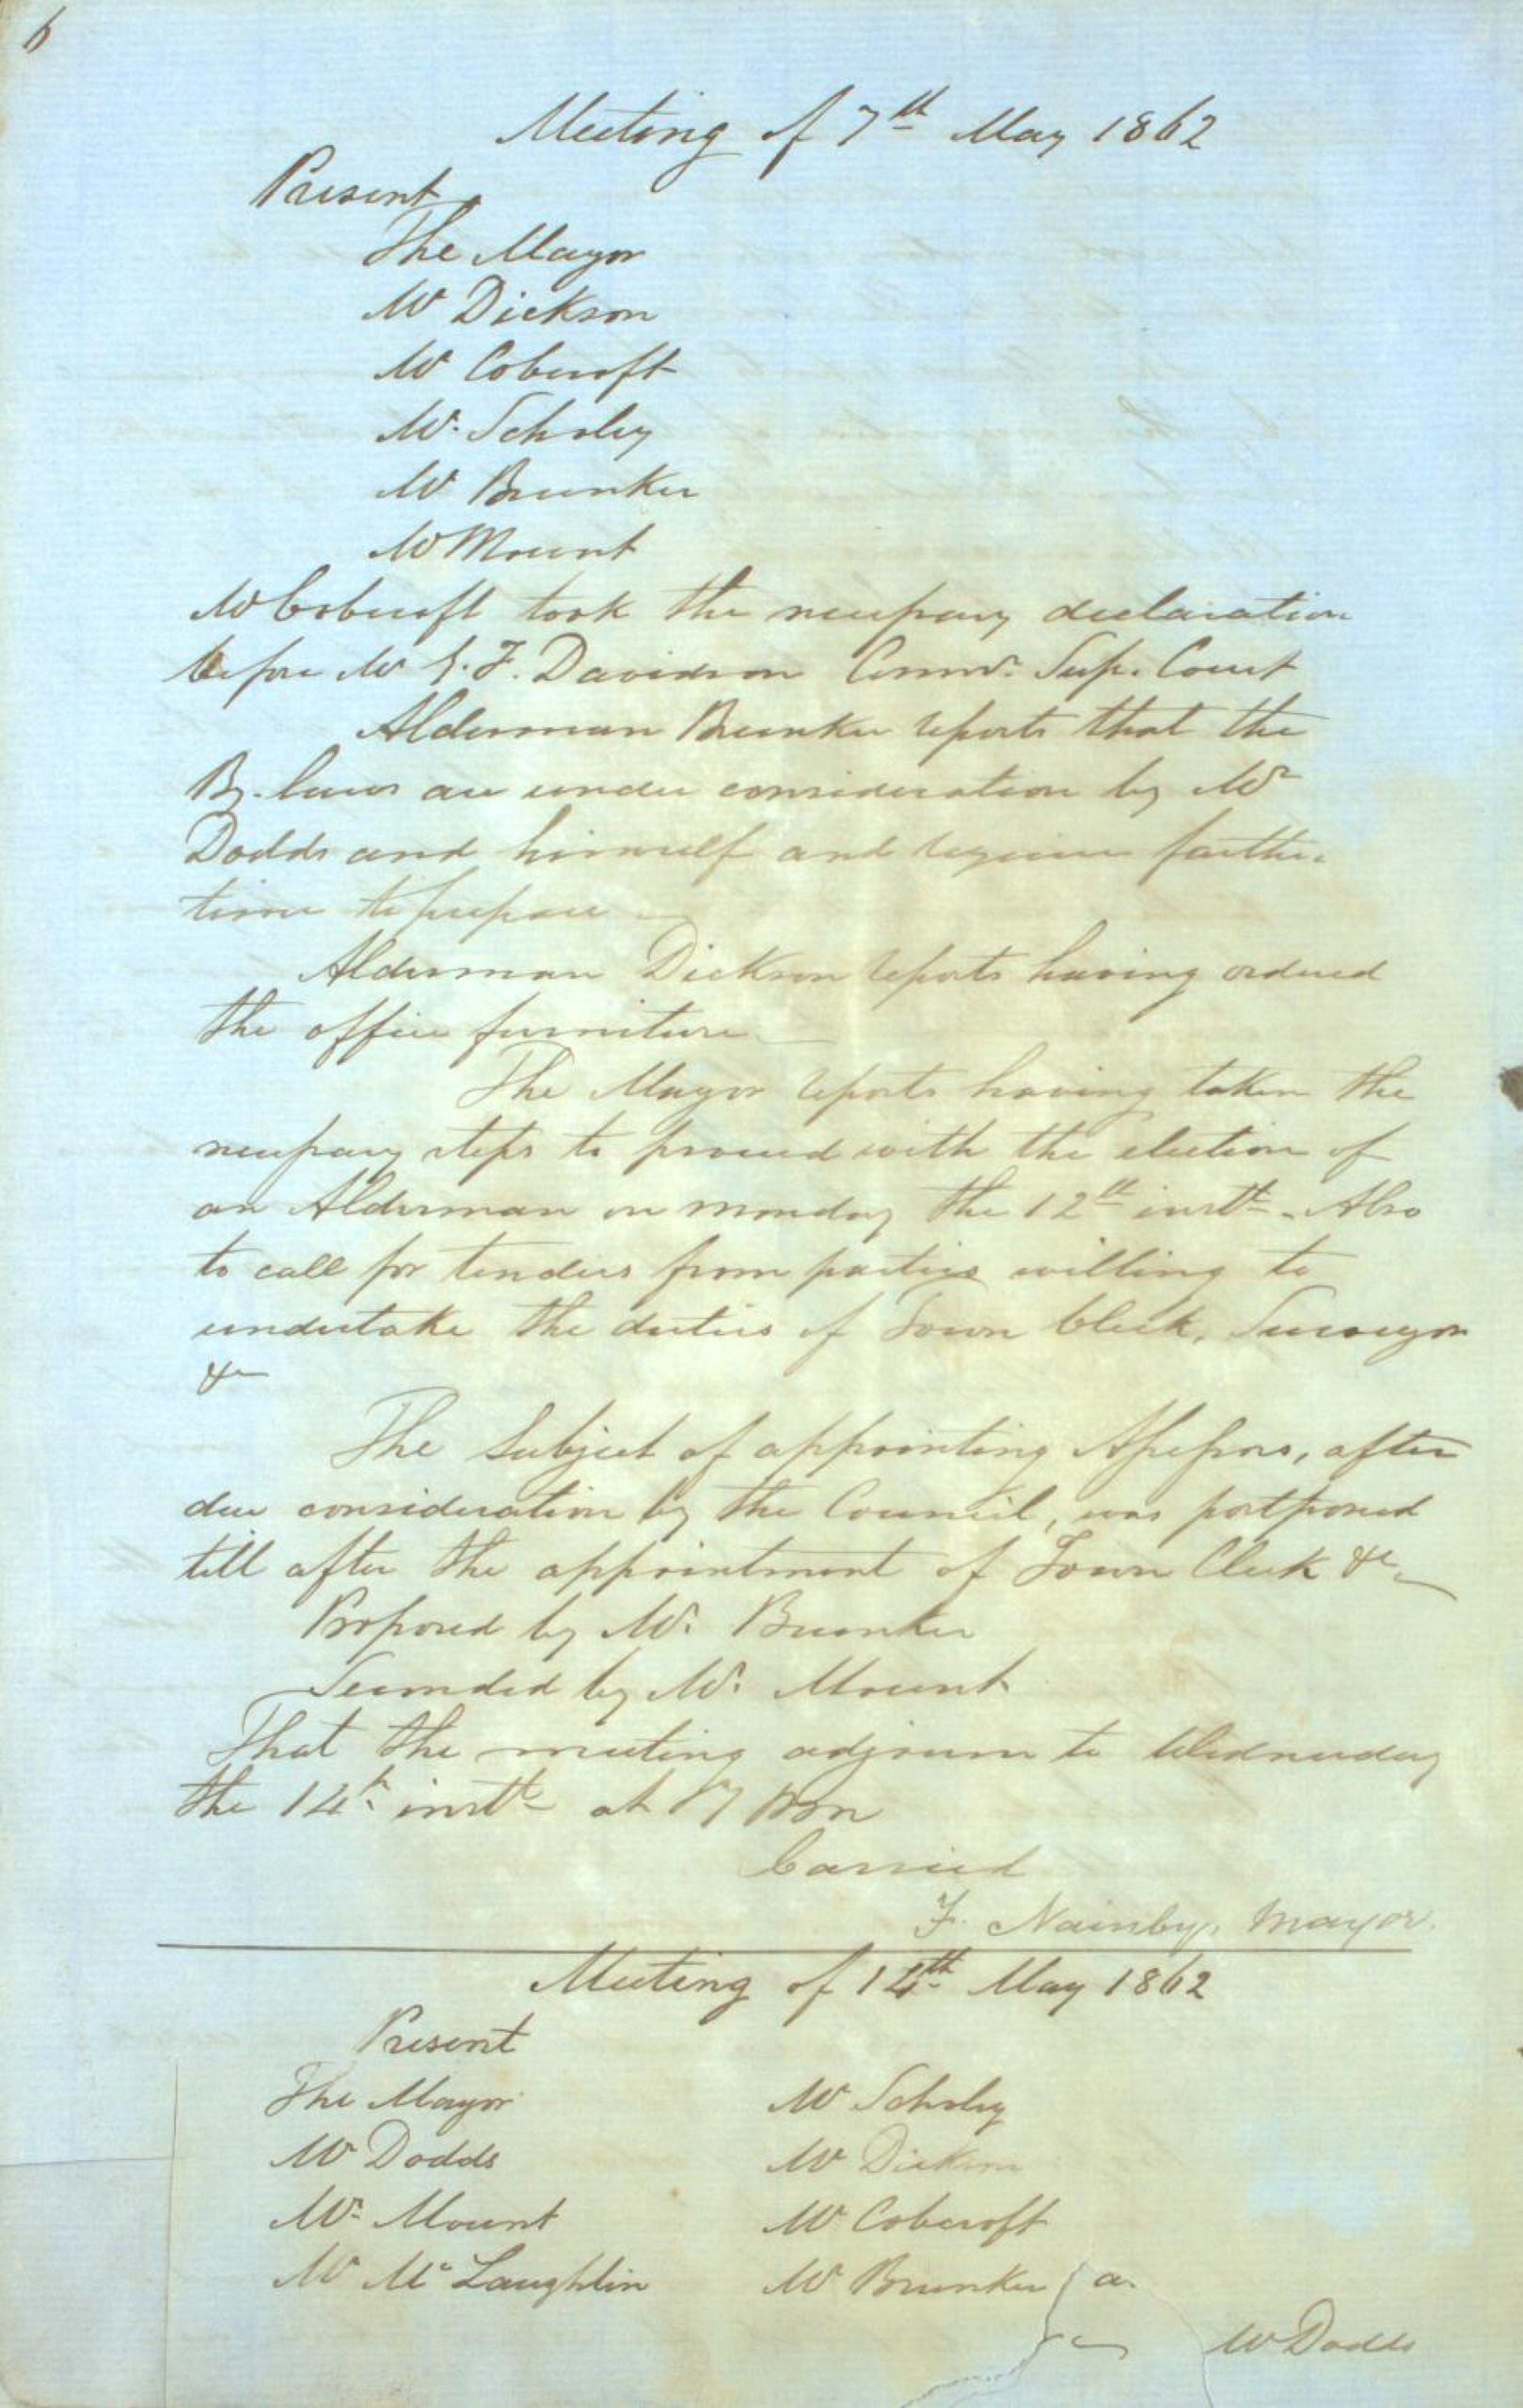 6
Meeting of 7th May 1862
Present
The Mayor
Mr Dickson
Mr Cobcroft
Mr. Scholey
Mr Brunker
Mr Mount
Mr Cobcroft took the necessary declaration
before Mr F. Davidson Commr. Sup. Court
Alderman Brunker reports that the
By-laws are under consideration by Mr
Dodds and himself and require further
time to prepare
Alderman Dickson reports having ordered
the office furniture
The Mayor reports having taken the
necessary steps to proceed with the election of
an Alderman on monday the 12th instt. Also
to call for tenders from parties willing to
undertake the duties of Town Clerk, Surveyor
&c
The Subject of appointing Assessors, after
due consideration by the Council, was postponed
till after the appointment of Town Clerk &c
Proposed by Mr. Brunker
Seconded by Mr. Mount
That the meeting adjourn to Wednesday
the 14th. instt at 7
Carried
F. Nainby, Mayor.
Meeting of 14th May 1862
Present
The Mayor Mr Scholey
Mr Dodds Mr Dickson
Mr. Mount Mr Cobcroft
Mr Mc Laughlin Mr Brunker a.
Mr Dodds